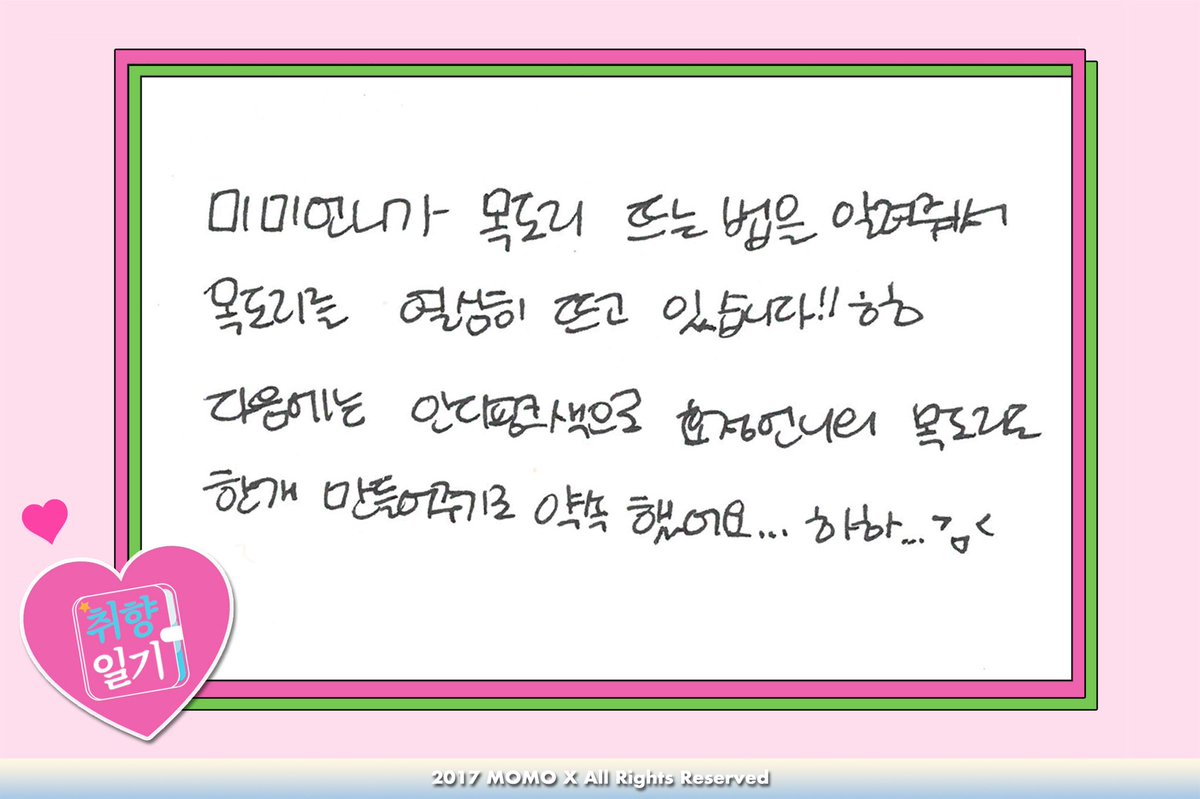 미미언니가 목도리 뜨는 법을 알려줘서
목도리를 열심히 뜨고 있습니다!! ㅎㅎ
다음에는 인디핑크색으로 효정언니의 목도리도
한개 만들어주기로 약속 했어요... 하하... >ㅁ<
취향
일기
2017 MOMO X All Rights Reserved